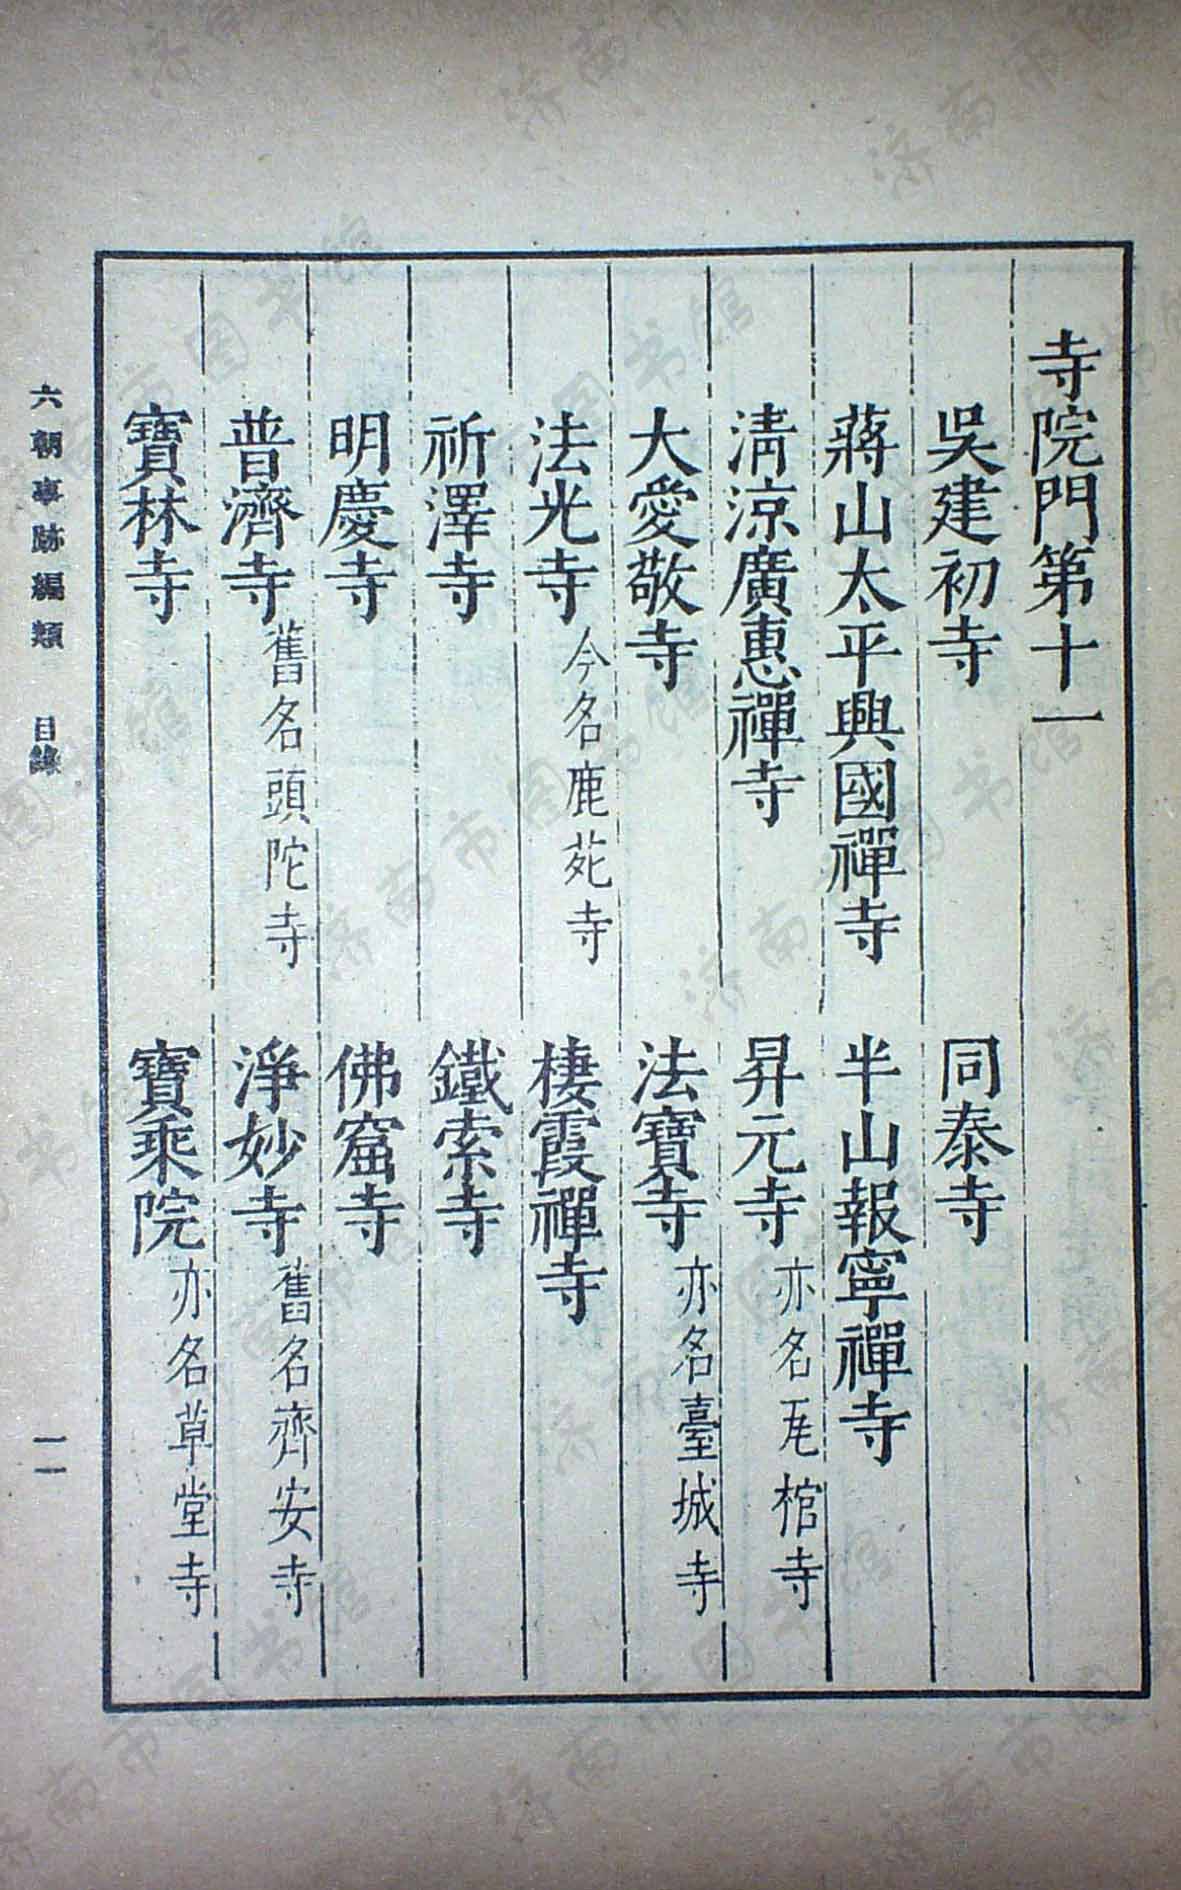 寺院門第十一
吳建初寺 同泰寺
蔣山太平興國禪寺 半山報寧禪寺
清涼廣惠禪寺 昇元寺亦名瓦棺寺
大愛敬寺 法寶寺亦名臺城寺
法光寺今名鹿苑寺 棲霞禪寺
祈澤寺 鐵索寺
明慶寺 佛窟寺
普濟寺舊名頭陀寺 淨妙寺舊名齊安寺
寶林寺 寶乘院亦名草堂寺
六朝事跡編類 目錄 一一
济南市图书馆